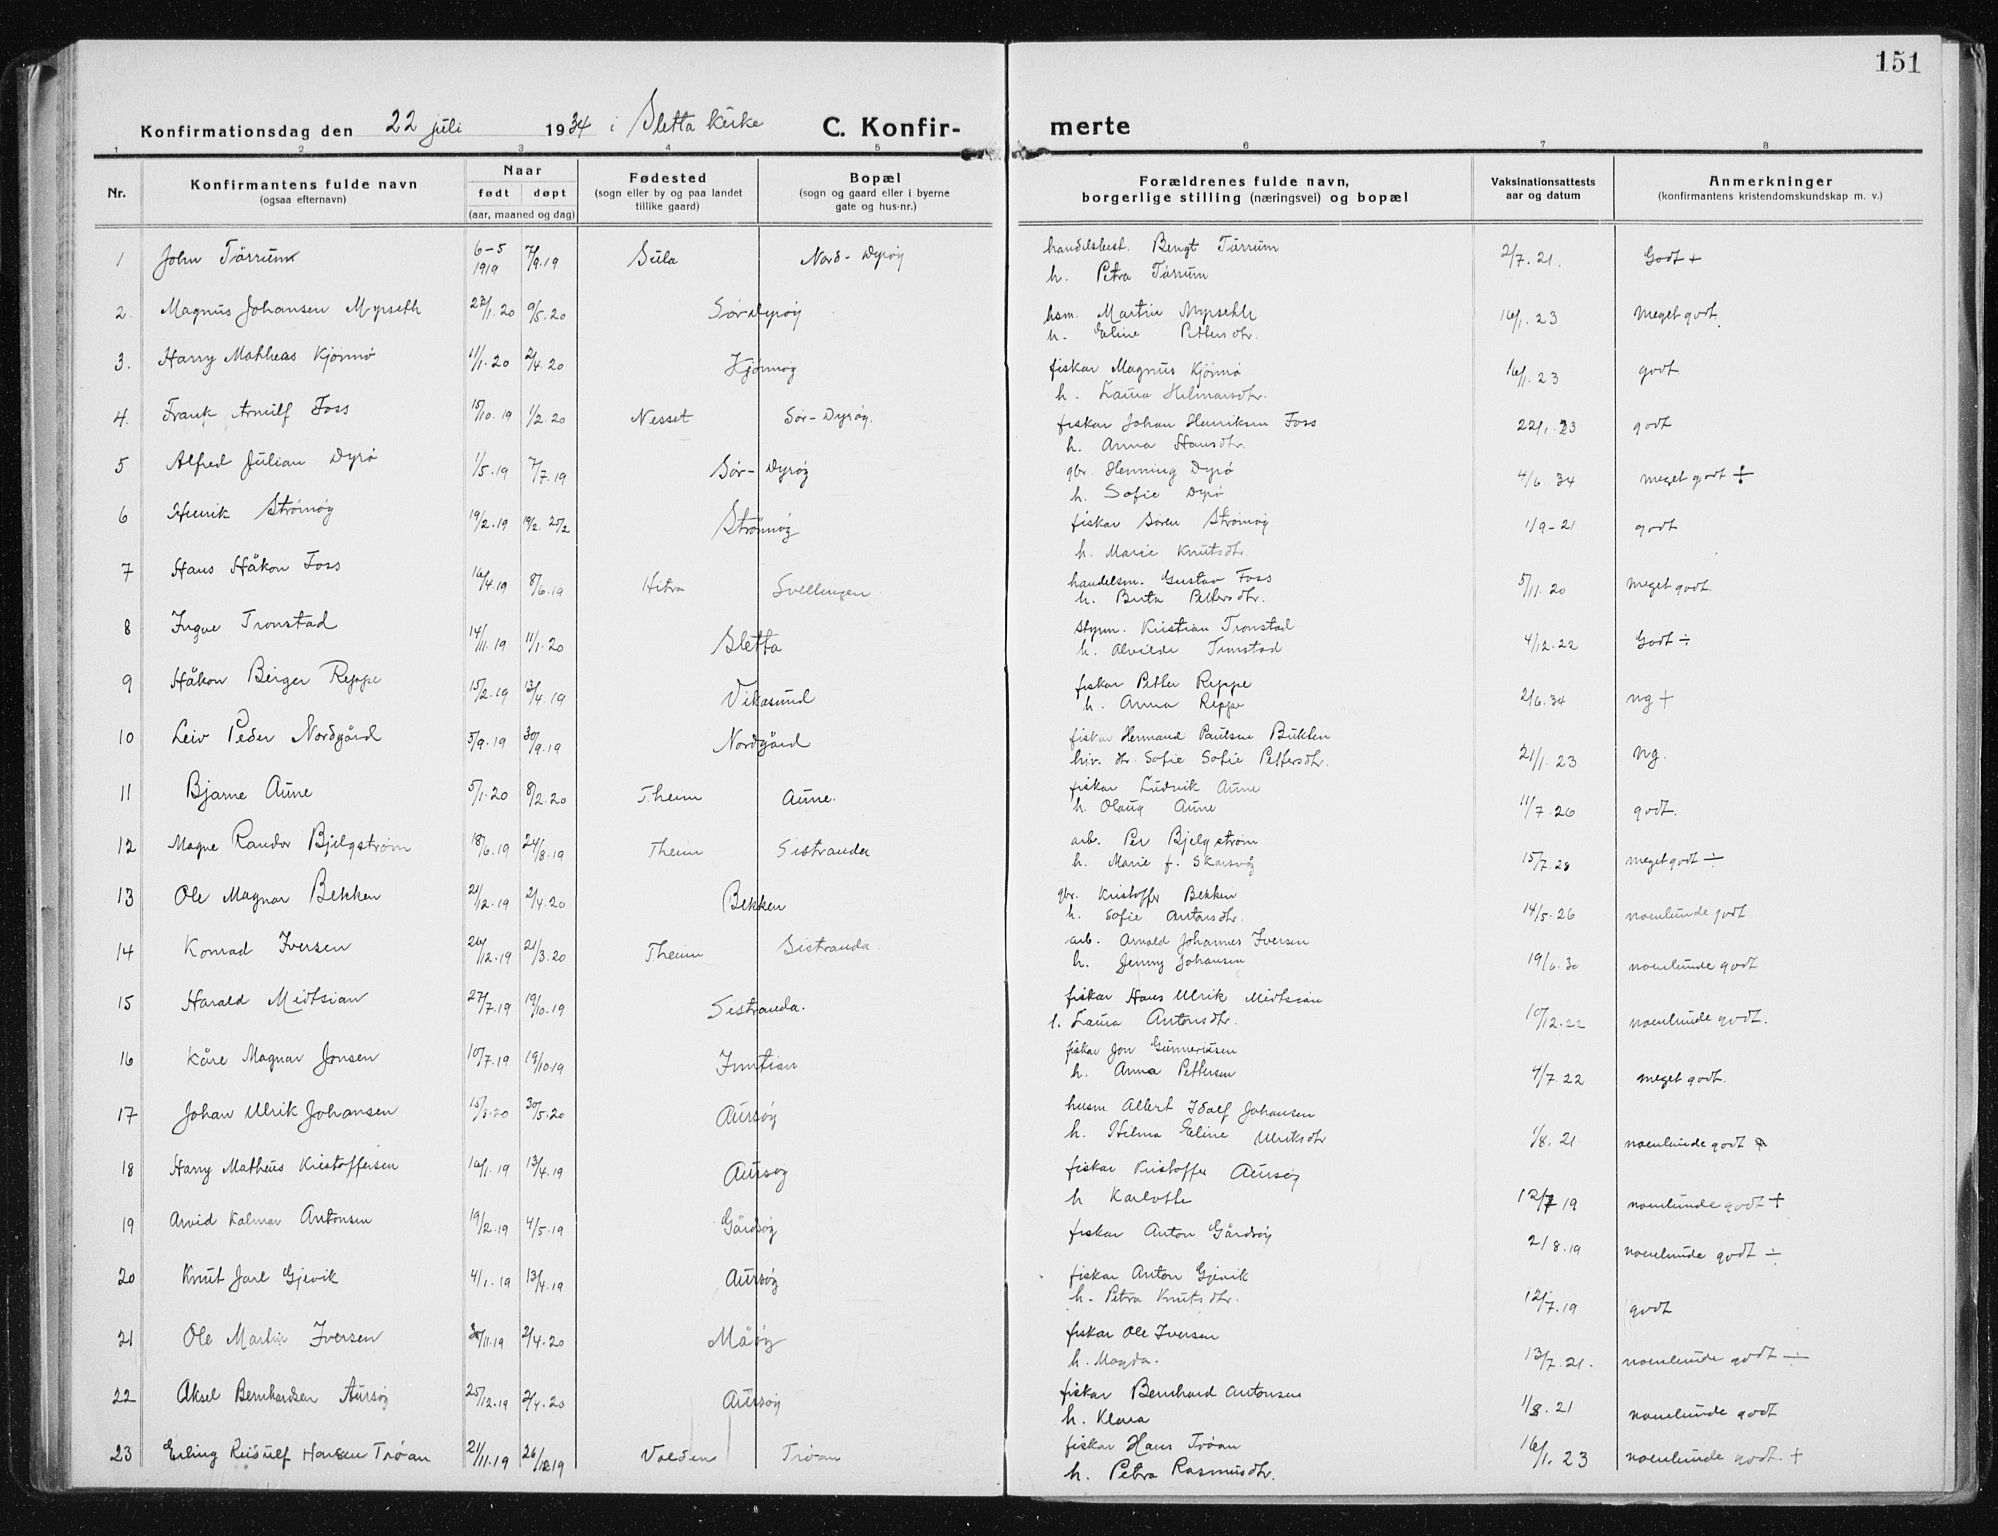 151
Konfirmationsdag den 22 juli 1934 i Sletta kirke C. Konfirmerte
1 2 3 4 5 6 7 8
Nr. Konfirmantens fulde navn (ogsaa efternavn) Naar født døpt (aar, maaned og dag) Fødested (sogn eller by og paa landet tillike gaard) Bopæl (sogn og gaard eller i byerne gate og hus-nr.) Forældrenes fulde navn, borgerlige stilling (næringsvei) og bopæl Vaksinationsattests aar og datum Anmerkninger (konfirmantens kristendomskundskap m. v.)
1 John Tärrum 6-5 1919 7/9.19 Sula Nord-Dyrøy handelsbest. Bengt Tärrum 2/7.21. Godt +
h. Petra Tärrum
2. Magnus Johansen Myrseth 22/1.20 9/5.20 Sør dyrøy hsm. Martin Myrseth 16/1.23 Meget godt.
h. Eline Pettersdtr.
3. Harry Matheas Kjönnø 11/1.20 2/4.20 Kjönnøy fiskar Magnus Kjönnø 16/1.23 godt
h. Laura Hilmarsdtr.
4. Frank Arnulf Foss 15/10.19 1/2.20 Nesset Sør-Dyrøy. fiskar Johan Henriksen Foss 22/1.23 godt
h. Anna Hansdtr.
5 Alfred Julian Dyrø 1/5.19 7/7.19 Sør-Dyrøy gbr. Henning Dyrø 4/6 34 meget godt ÷
h. Sofie Dyrø
6 Henrik Strømøy 19/2.19 19/2. 25/2 Strömøy fiskar Sören Strømøy 1/9-21 godt
h. Marie Knutsdtr.
7 Hans Håkon Foss 16/4.19 8/6.19 Hitra Svellingen handelsm. Gustav Foss 5/11.20 Meget godt.
h. Berta Pettersdtr.
8 Ingve Tronstad 14/11.19 11/1.20 Sletta styrm. Kristian Tronstad 4/12.22 Godt ÷
h. Alvilde Tronstad
9 Håkon Berger Reppe 15/2.19 13/4.19 Vikasund fiskar Petter Reppe 2/6.34 ng +
h. Anna Reppe
10 Leiv Peder Nordgård 5/9.19 30/9.19 Nordgård fiskar Hermand Paulsen Bukten 21/1.23 ng.
hiv. dtr. Sofie Sofie Pettersdtr.
11 Bjarne Aune 5/1.20 8/2.20 T.heim Aune. fiskar Ludvik Aune 11/7.26 godt.
h. Olaug Aune
12 Magne Randor Bjelgström 18/6.19 24/8.19 Theim Sistranda arb. Per Bjelgström 15/7.28 meget godt ÷
h. Marie f. Skarsvåg
13 Ole Magnar Bekken 21/12.19 2/4.20 Bekken gbr. Kristoffer Bekken 14/5.26 noenlunde godt
h. Sofie Antonsdtr.
14 Konrad Iversen 26/12.19 21/3.20 Theim Sistranda. arb. Arnold Johannes Iversen 19/6.30 noenlunde godt
h. Jenny Johansen
15 Harald Midtsian 27/7.19 19/10.19 Sistranda. fiskar Hans Ulrik Midtsian 10/12.22 noenlunde godt.
h. Laura Antonsdtr.
16 Kåre Magnar Jonsen 10/7.19 19/10.19 Inntian fiskar Jon Gunneriusen 4/7.22 meget godt.
h. Anna Pettersen
17 Johan Ulrik Johansen 15/3.20 30/5.20 Aursøy husm. Albert Idolf Johansen 1/8.21 noenlunde godt
h. Hilma Eline Ulriksdtr
18 Harry Matheus Kristoffersen 16/1.19 13/4.19 Aursøy fiskar Kristoffer Aursøy 12/7 19 noenlunde godt +
h Karlotte
19 Arvid Kalmar Antonsen 19/2.19 4/5.19 Gårdsøy fiskar Anton Gårdsøy 2/8.19 noenlunde godt ÷
20 Knut Jarl Gjevik 4/1.19 13/4.19 Aursøy fiskar Anton Gjevik 12/7.19 godt
h. Petra Knutsdtr.
21 Ole Martin Iversen 30/11.19 2/4.20 Måøy fiskar Ole Iversen 13/7.21. noenlunde godt ÷
h. Magda.
22 Aksel Bernhardsen Aursøy 25/12.19 2/4.20 Aursøy fiskar Bernhard Antonsen 1/8.21 noenlunde godt
h. Klara
23 Erling Reidulf Hansen Tröan 21/11.19 26/12.19 Valden Tröan fiskar Hans Tröan 16/1.23 noenlunde godt. +
h. Petra Rasmusdtr.